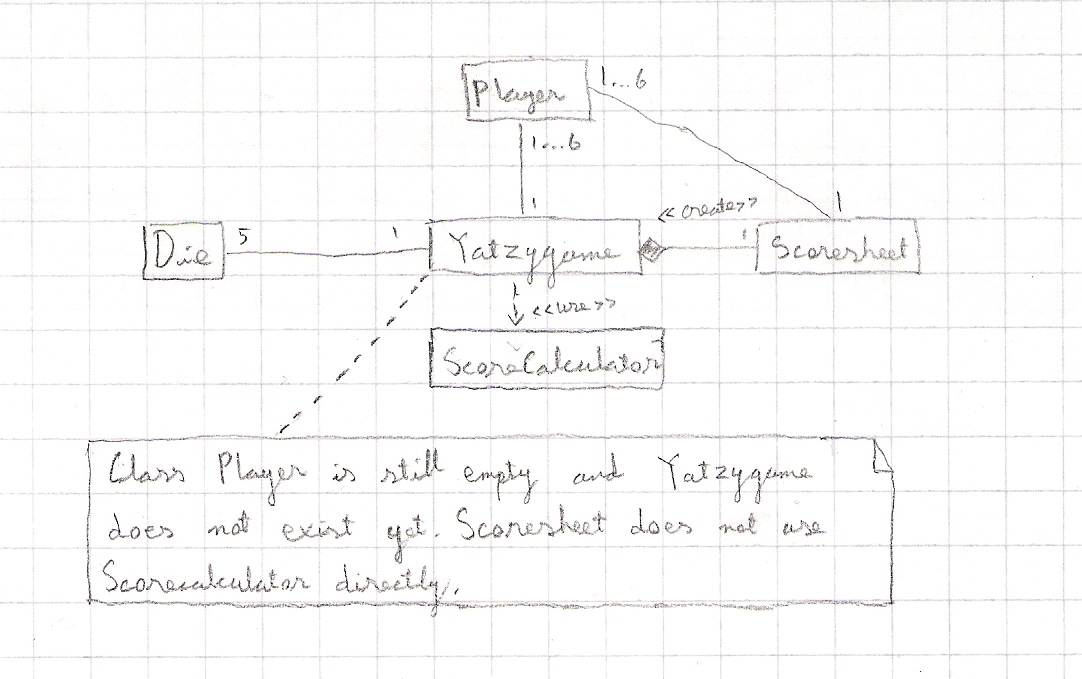 Player 1...6
1...6
1
<<create>> 1
Die 5 1 Yatzygame 1 Scoresheet
<<use>>
ScoreCalculator
Class Player is still empty and Yatzygame
does not exist yet. Scoresheet does not use
Scorecalculator directly.